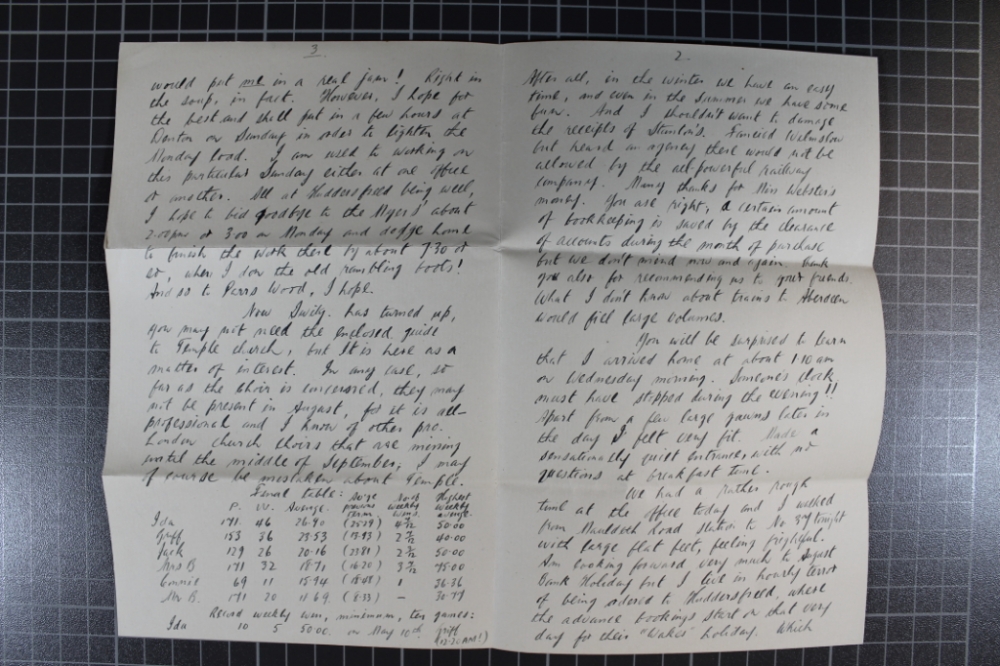 2.
After all, in the winter we have an easy
time, and even in the Summer we have some
fun. And I shouldn't want to damage
the receipts of Fancied Wilmslow
but heard an agency there would not be
allowed by the all-powerful railway
company. Many thanks for Miss Webster's
money. You are right, a certain amount
of bookkeeping is saved by the clearance
of accounts during the month of purchase
but we don't mind now and again. Thank
you also for recommending us to your friends.
What I don't know about trains to Aberdeen
would fill large volumes.
You will be surprised to learn
that I arrived home at about 1.10 am
on Wednesday morning. Someone's clock
must have stopped during the evening!!
Apart from a few large yawns later in
the day I felt very fit. Made a
sensationally quiet entrance, with no
questions at breakfast time.
We had a rather rough
time at the office today and I walked
from Mauldeth Road Station to No. 87 tonight
with large flat feet, feeling frightful.
Am looking forward very much to August
Bank Holiday but I live in hourly terror
of being ordered to Huddersfield, where
the advance bookings start on that very
day for their "Wakes" holiday. Which
3.
would put me in a real jam! Right in
the soup, in fact. However, I hope for
the best and shall put in a few hours at
Denton on Sunday in order to lighten the
Monday load. I am used to working on
this particular Sunday either at one office
or another. All at Huddersfield being well,
I hope to bid goodbye to the Myers' about
2.00pm or 3.00 on Monday and dodge home
to finish the work there by about 7.30 or
so, when I don the old rambling boots!
And so to Parrs Wood, I hope.
Now has turned up,
you may not need the enclosed guide
to Temple church, but it is here as a
matter of interest. In any case, so
far as the choir is concerned, they may
not be present in August, for it is all-
professional and I know of other pro.
London church choirs that are missing
until the middle of September; I may
of course be mistaken about Temple.
Final table:
P. W. Average. weekly wins. Highest weekly average.
Ida 171 46 26.90 (25.19) 4½ 50.00
Griff 153 36 23.53 2½ 40.00
Jack 129 26 20.16 (23.81) 2½ 50.00
Mrs B 171 32 18.71 (16.20) 3½ 45.00
Connie 69 11 15.94 1 36.36
Mr B. 171 20 11.69 (8.33) — 30.77
Record weekly win, minimum, ten games:
Ida 10 5 50.00 on May 10th